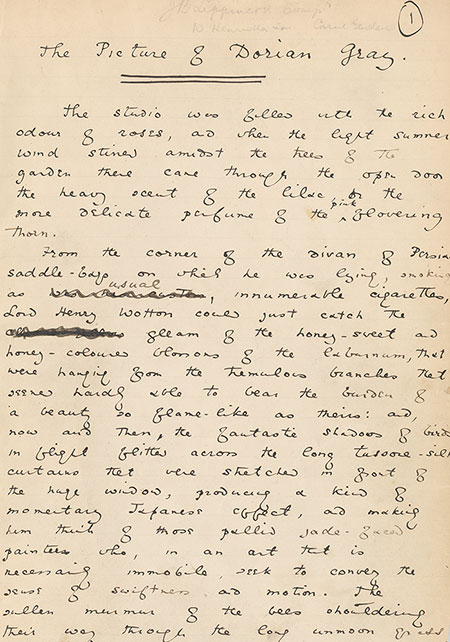 1
Henrietta Covent Garden
The Picture of Dorian Gray.
The studio was filled with the rich
odour of roses, and when the light summer
wind stirred amidst the trees of the
garden there came through the open door
the heavy scent of the lilac, or the
more delicate perfume of the pink flowering
thorn.
From the corner of the divan of Persian
saddle-bags on which he was lying, smoking
as usual, innumerable cigarettes,
Lord Henry Wotton could just catch the
gleam of the honey-sweet and
honey-coloured blossoms of the laburnum, that
were hanging from the tremulous branches that
seemed hardly able to bear the burden of
a beauty so flame-like as theirs: and,
now and then, the fantastic shadows of birds
in flight flitted across the long tussore-silk
curtains that were stretched in front of
the huge window, producing a kind of
momentary Japanese effect, and making
him think of those pallid jade-faced
painters who, in an art that is
necessarily immobile, seek to convey the
sense of swiftness and motion. The
sullen murmur of the bees shouldering
their way through the long unmown grass